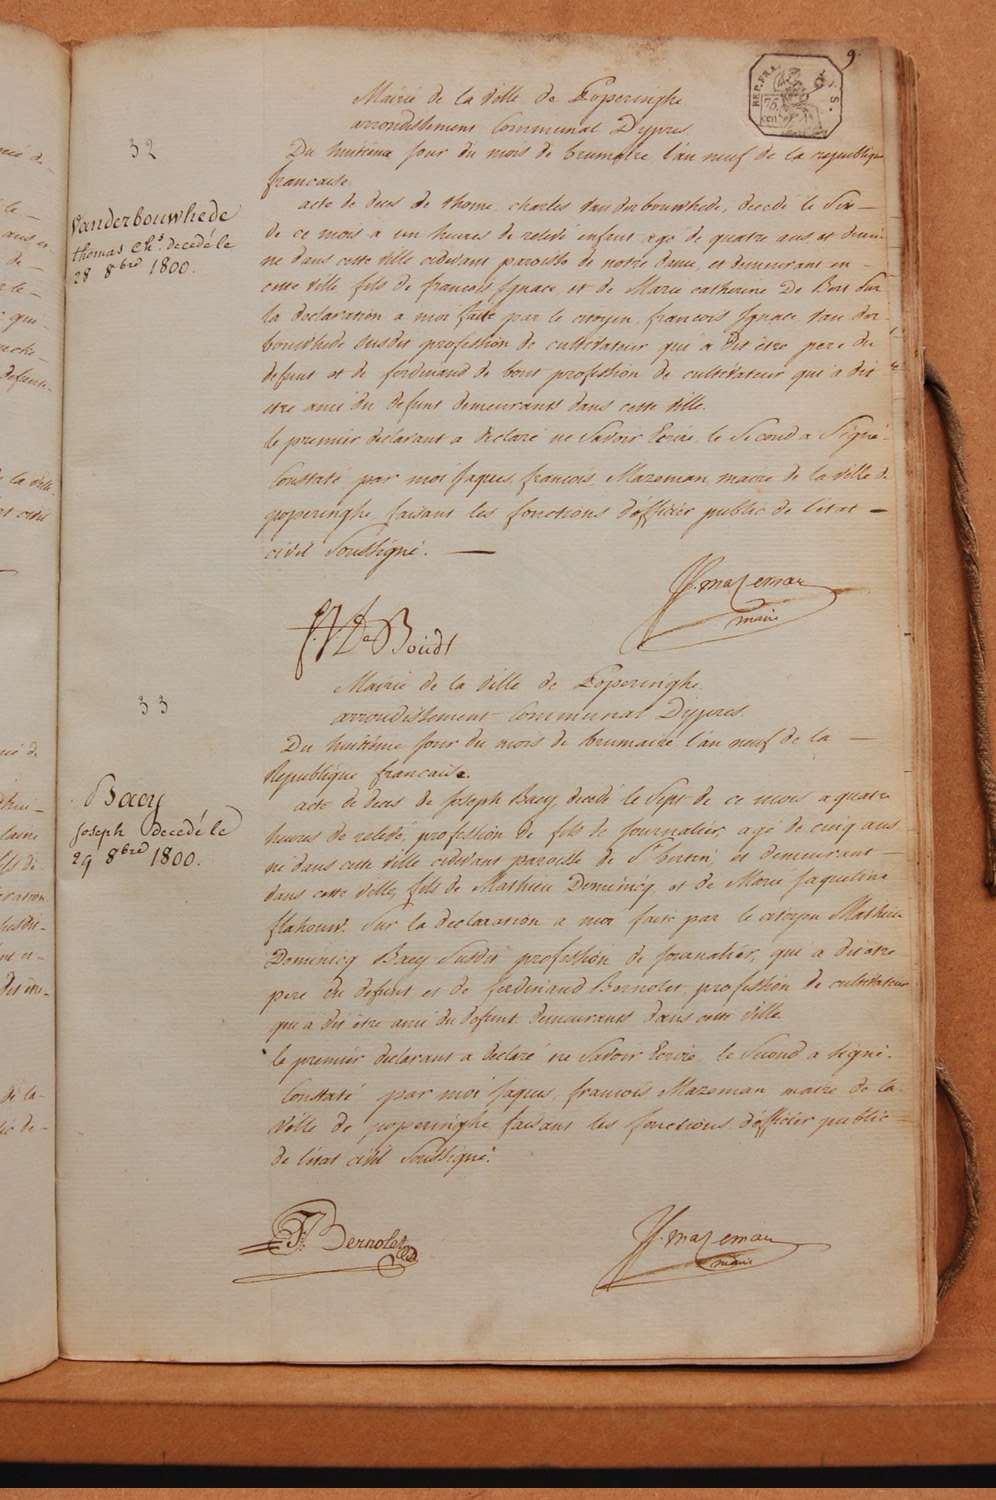 9.
REP. FRA.
75 cen
32
Mairie de la ville de Poperinghe
arrondissement Communal Dypres.
Du huitieme jour du mois de brumaire l'an neuf de la republique
francaise.
Vanderbouwhede
thomas Chs. decedé le
28 8bre 1800.
acte de deces de thoma, charles Vanderbouwhede, decedé le Six —
de ce mois a un heures de relevé enfant agé de quatre ans et demi
né dans cette ville cidevant paroisse de notre dame, et demeurant en —
cette ville fils de francois Ignace, et de Marie catherine De Bort Sur
la declaration a moi faite par le citoyen francois Ignace Van der-
bouwhede susdit profession de cultivateur qui a dit être pere du
defunt et de ferdinand de bout profession de cultivateur qui a dit
etre ami du defunt demeurants dans cette ville.
le premier declarant a declaré ne Savoir Ecrire, le Second a Signé.
Constaté par moi Jaques, francois, Mazeman maire de la ville de
poperinghe faisant les fonctions d'officier public de l'etat —
civil Soussigné. —
JF. mazeman
maire
F. De Boudt
33
Mairie de la Ville de Poperinghe.
arrondissement Communal Dypres.
Du huitieme jour du mois de brumaire l'an neuf de la —
Republique francaise.
Baey
Joseph decedé le
29 8bre 1800.
acte de deces de Joseph Baey decedé le Sept de ce mois a quatre
heures de relevé, profession de fils de journalier, agé de cinq ans
né dans cette ville cidevant paroisse de St bertin, et demeurant —
dans cette ville, fils de Mathieu Domenicq et de Marie Jaqueline
flahouw. Sur la declaration a moi faite par le citoyen Mathieu
Domenicq Baey Susdit profession de journalier, qui a dit etre
pere du defunt et de ferdinand Bernolet profession de cultivateur
qui a dit être ami du defunt demeurants dans cette ville.
le premier declarant a declaré ne Savoir Ecrire, le Second a Signé.
Constaté par moi Jaques, francois Mazeman maire de la
Ville de poperinghe faisant les fonctions d'officier public —
de l'etat civil Soussigné.
F: Bernolet
JF. mazeman
maire